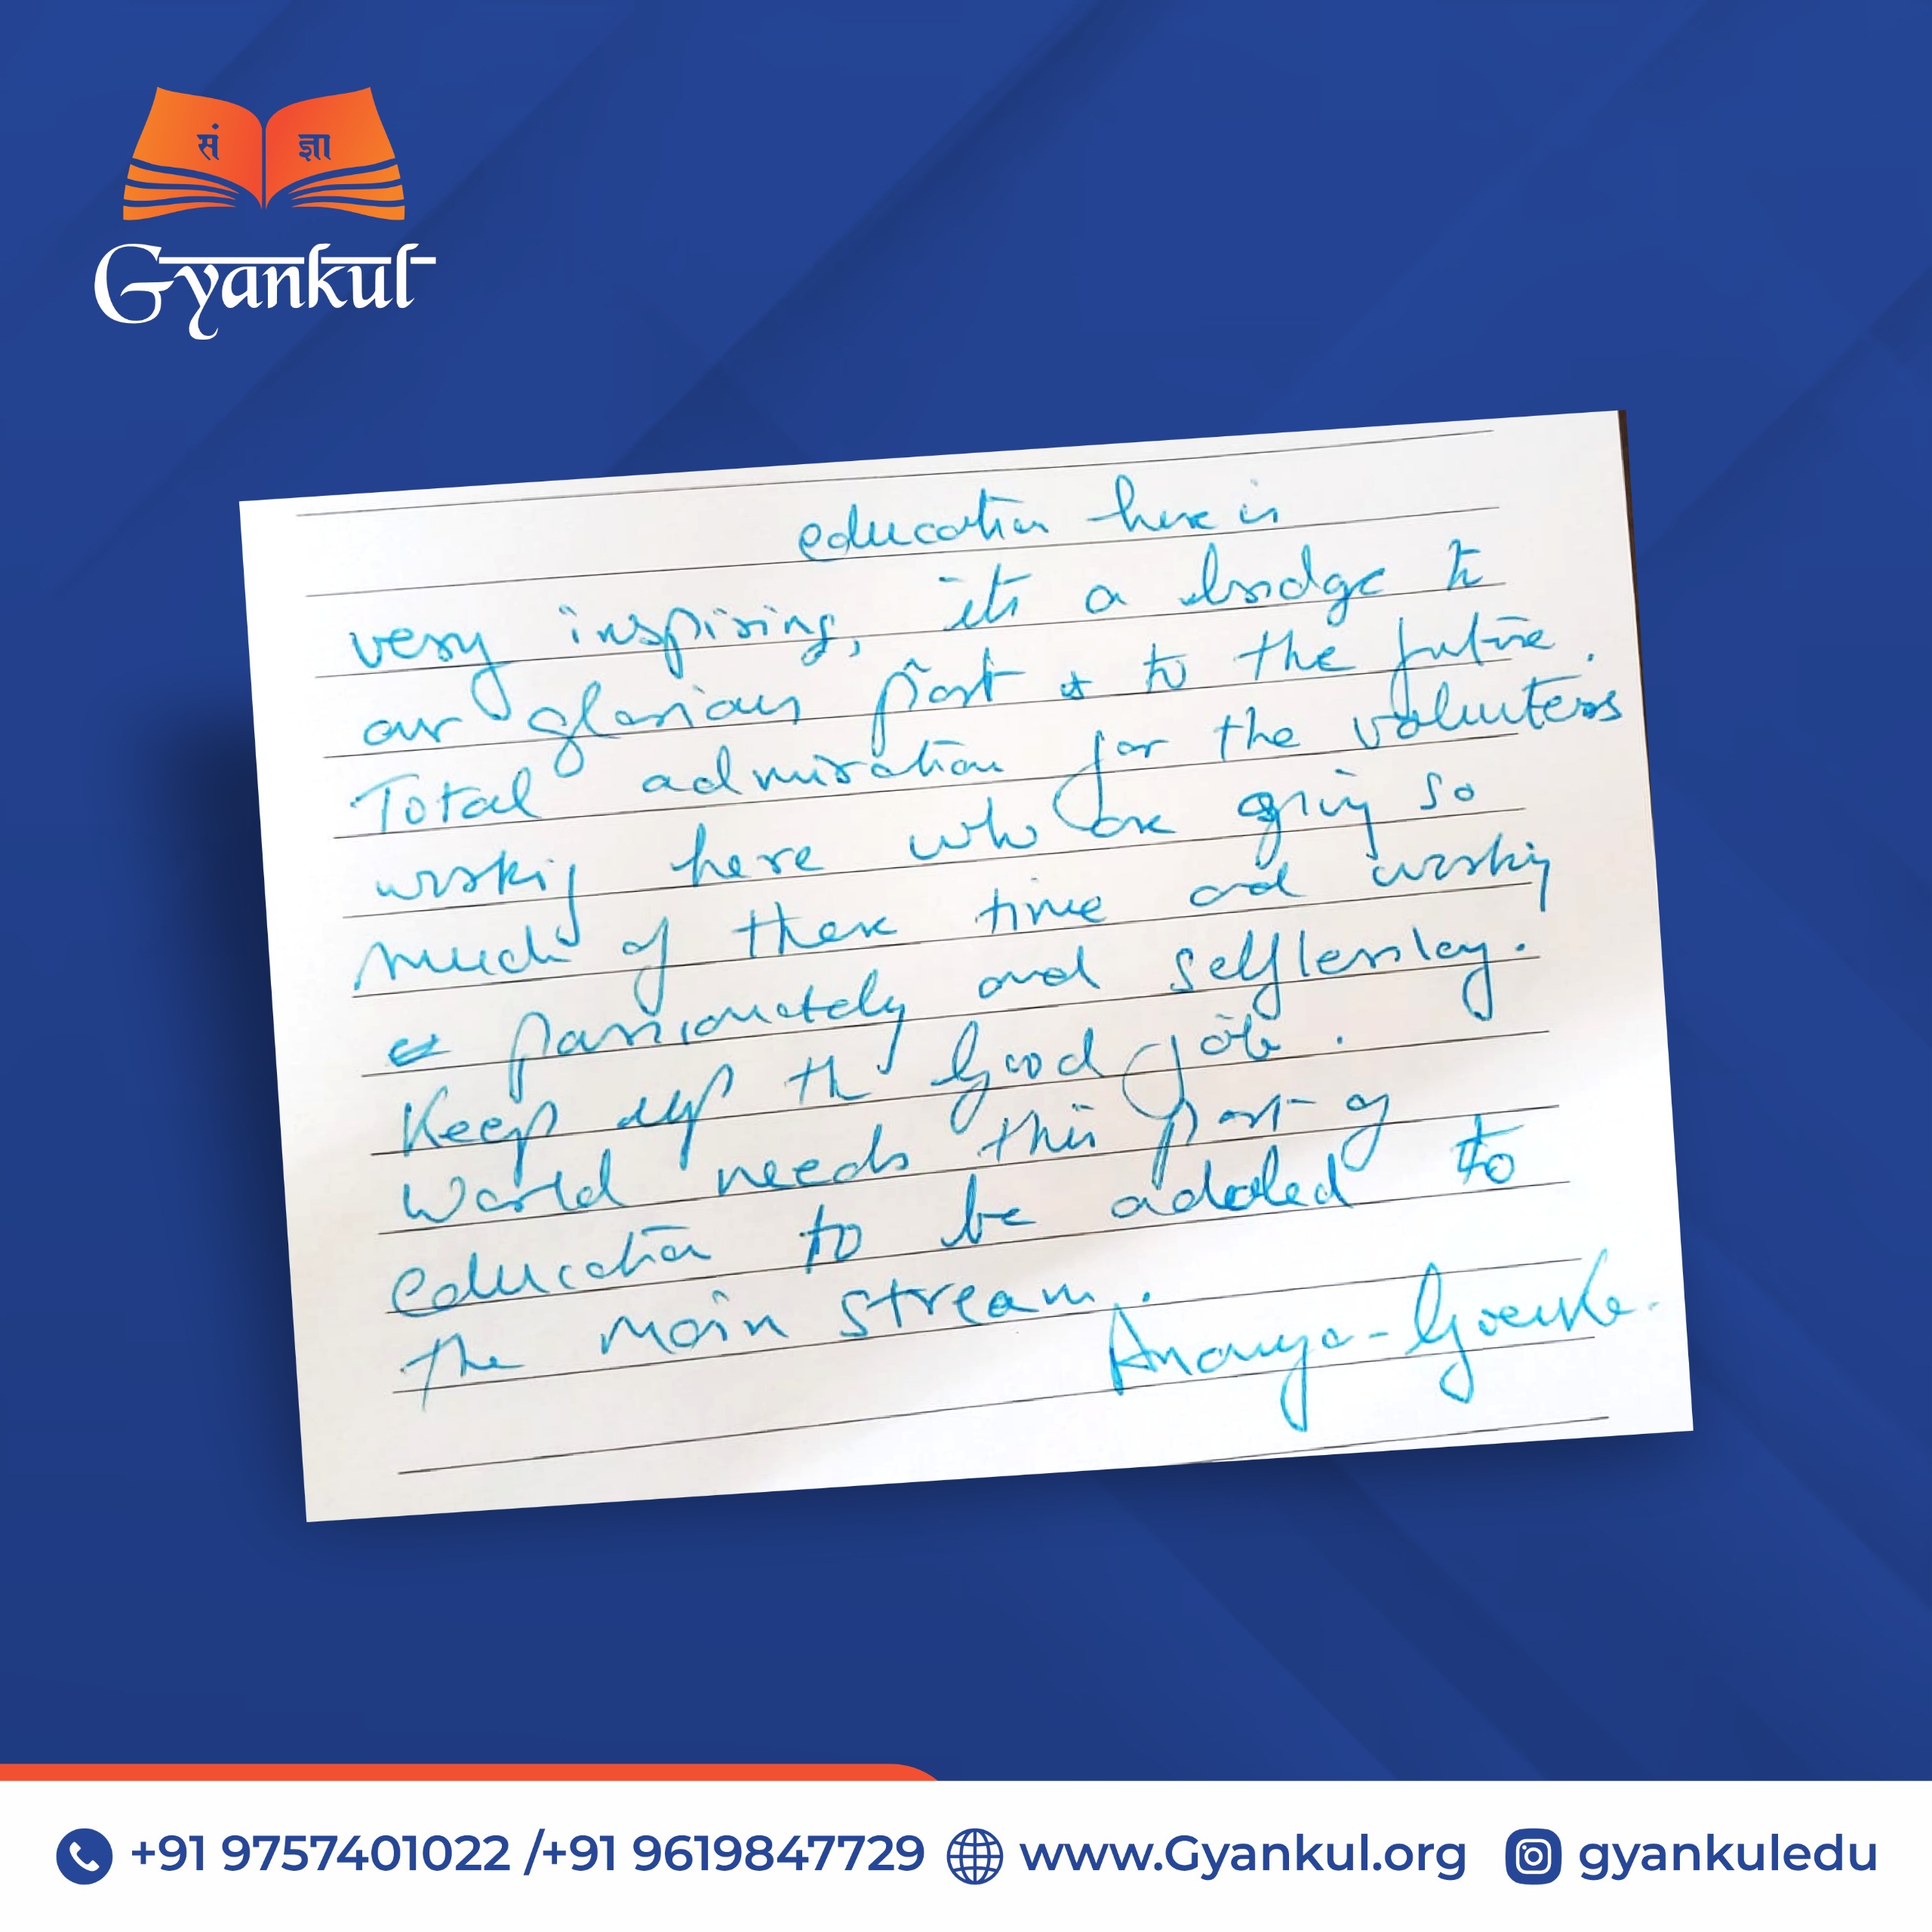 सं ज्ञा
Gyankul
education here is
very inspiring, its a bridge to
our glorious past & to the future.
Total admiration for the voluters
working here who are giving so
much of there time and working
passionately and selflessley.
Keep up the Good Job.
World needs this part of
education to be added to
the main stream.
Ananya - Goenka.
+91 9757401022 /+91 9619847729 www.Gyankul.org gyankuledu